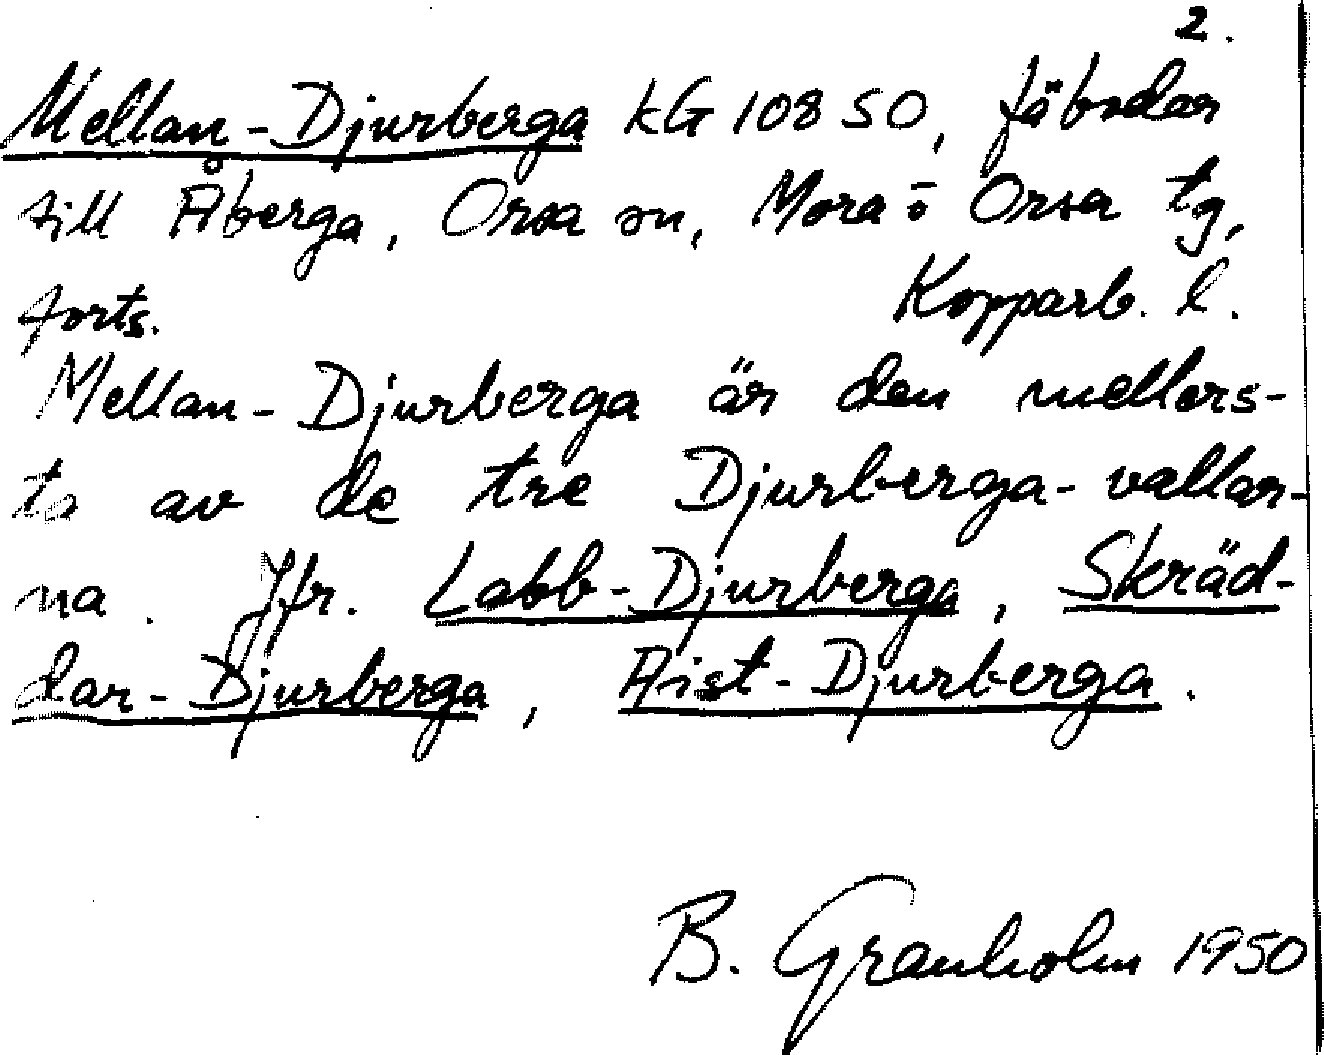 2.
Mellan-Djurberga kG 108 SO, fäbodar
till Åberga, Orsa sn, Mora o Orsa tg,
forts. Kopparb. l.
Mellan-Djurberga är den mellers-
ta av de tre Djurberga-vallar-
na. Jfr. Labb-Djurberga, Skräd-
dar-Djurberga, Aist-Djurberga.
B. Granholm 1950